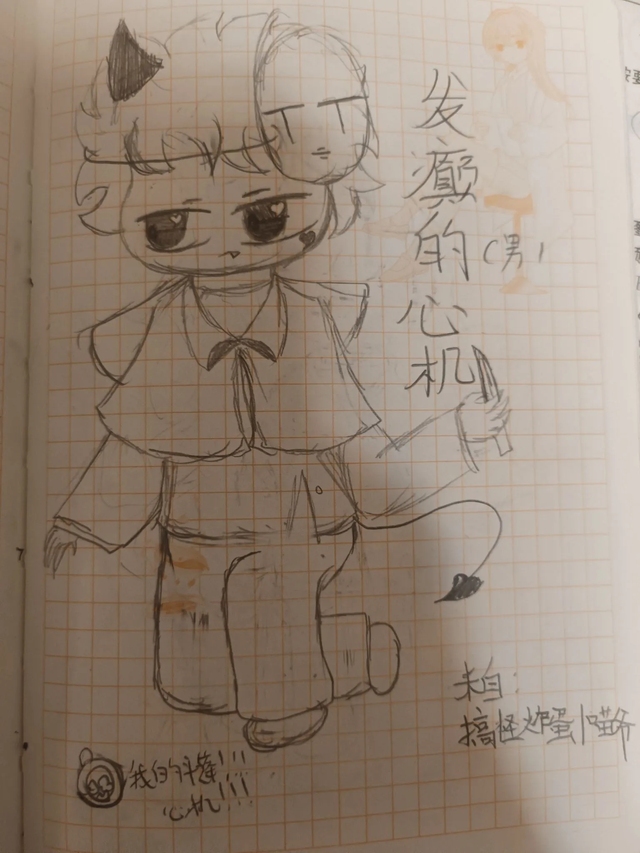 发癫的心机
(男)
来自:
搞怪炸蛋小喵爷
我的斗篷!!!
心机!!!